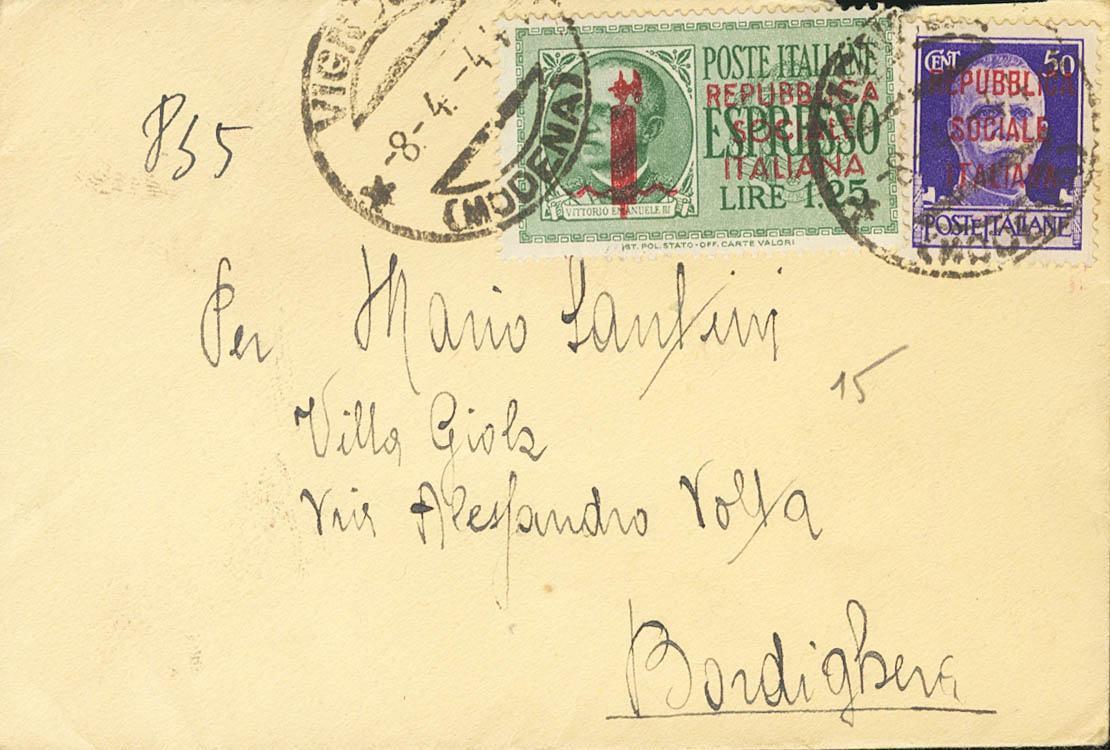 -8.-4.-4
(MODENA)
POSTE ITALIANE
REPUBBLICA
SOCIALE
ITALIANA
ESPRESSO
LIRE 1.25
VITTORIO EMANUELE III
IST. POL. STATO-OFF. CARTE VALORI
CENT 50
REPUBBLICA
SOCIALE
ITALIANA
POSTE ITALIANE
Per Mario Santini
15
Villa Giola
Via Alessandro Volta
Bordighera